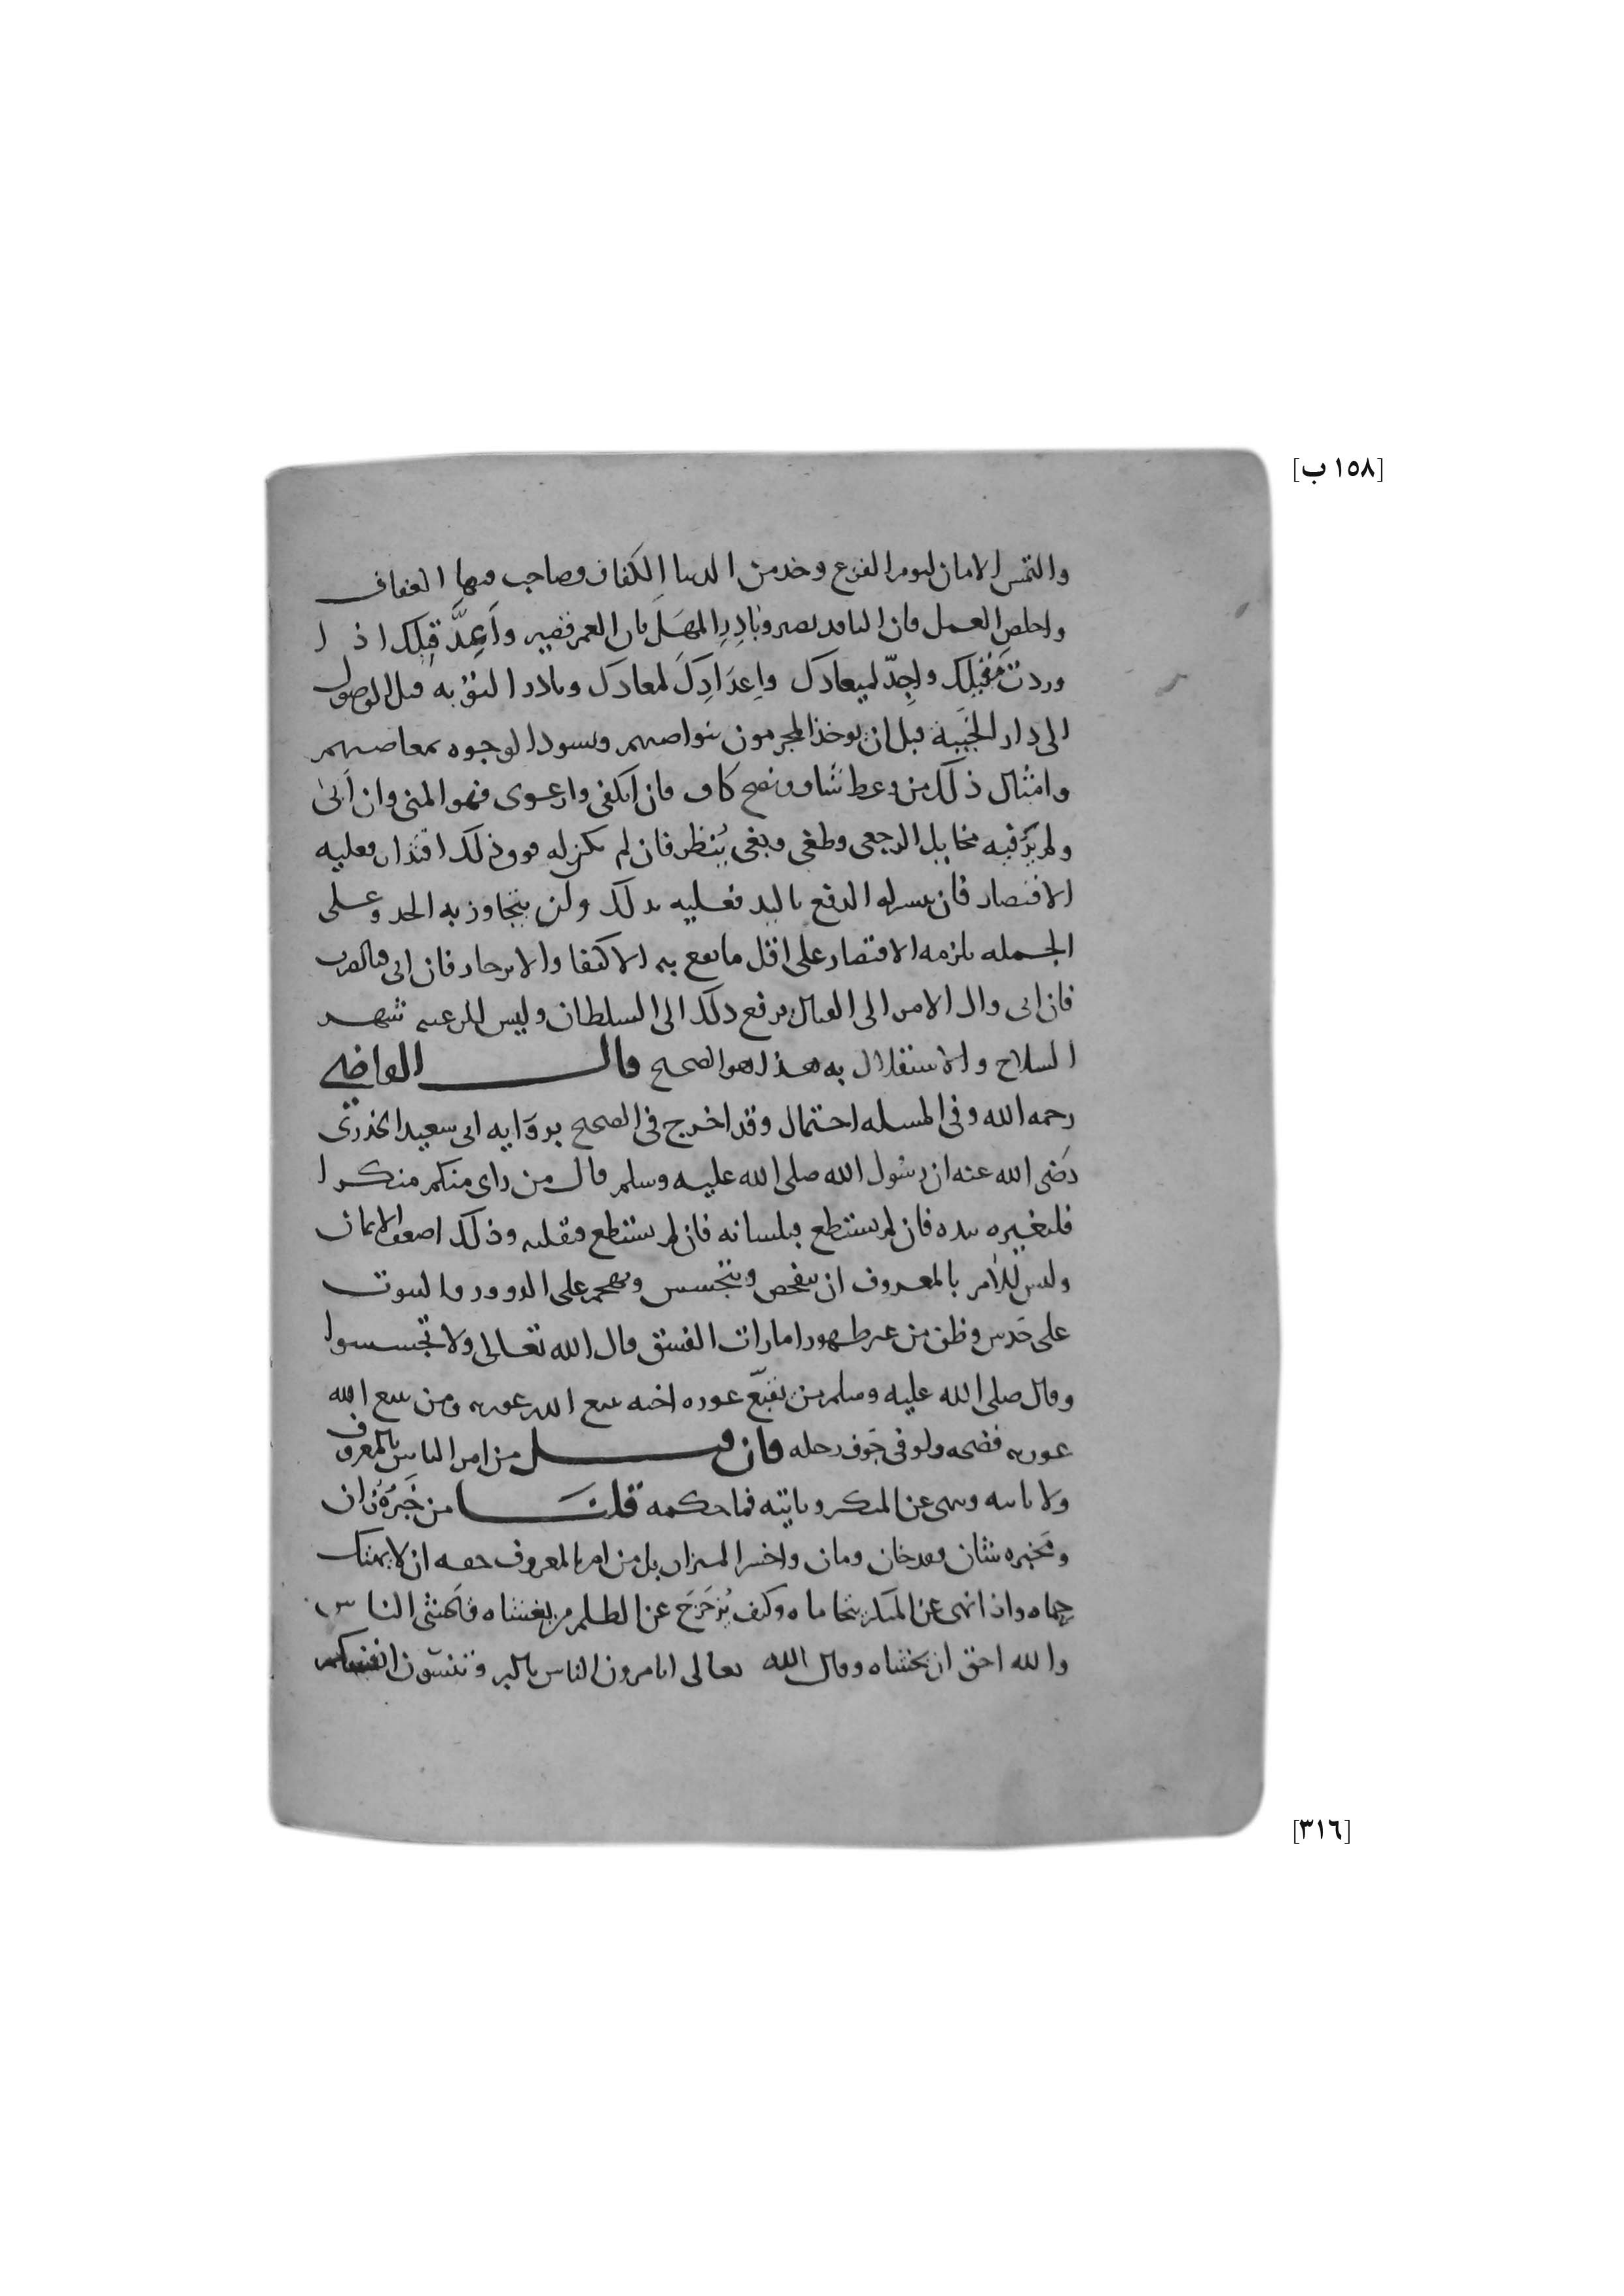 [١٥٨ ب]
والتمس الامان ليوم الفزع وخذ من الدنيا الكفاف وصاحب فيها العفاف
واخلص العمل فان الناقد بصير وبادر المهل فان العمر قصير واعد قبلك اذا
وردت مقبلك واجد لميعادك واعدادك لمعادك وبادر التوبه قبل الوصول
الى دار الخيبة قبل ان يوخذ المجرمون بنواصيهم وتسود الوجوه بمعاصيهم
وامثال ذلك من وعظ شاف ونصح كاف فان اكتفى وارعوى فهو المنى وان ابى
ولم ير فيه مخايل الرجعى وطغى وبغى ينظر فان لم يكن له فوق ذلك اقتدار فعليه
الاقتصار فان تيسر له الدفع باليد فعليه بذلك ولن يتجاوز به الحد وعلى
الجمله يلزمه الاقتصار على اقل ما يقع به الاكتفا والانزجار فان ابى فبالضرب
فان ابى وال الامر الى القتال يرفع ذلك الى السلطان وليس للرعيه شهر
السلاح والاستقلال به هذا هو الصحيح قال القاضي
رحمه الله وفى المسله احتمال وقد اخرج فى الصحيح بروايه ابى سعيد الخدرى
رضى الله عنه ان رسول الله صلى الله عليه وسلم قال من راى منكم منكرا
فليغيره بيده فان لم يستطع فبلسانه فان لم يستطع فبقلبه وذلك اضعف الايمان
وليس للامر بالمعروف ان يتفحص ويتجسس ويهجم على الدور والبيوت
على حدس وظن من غير ظهور امارات الفسق قال الله تعالى ولا تجسسوا
وقال صلى الله عليه وسلم من تتبع عوره اخيه تتبع الله عورته ومن تتبع الله
عورته فضحه ولو فى جوف رحله فان قيل من امر الناس بالمعروف
ولا ياتيه ونهى عن المنكر وياتيه فما حكمه قلنا من خبره زان
ومخبره شان فقد خان ومان واخسر الميزان بل من امر بالمعروف حقه ان لا يهتك
حماه واذا نهى عن المنكر يتحاماه وكيف يزحزح عن الظلم من يغشاه فتخشى الناس
والله احق ان تخشاه وقال الله تعالى اتامرون الناس بالبر وتنسون انفسكم
[٣١٦]